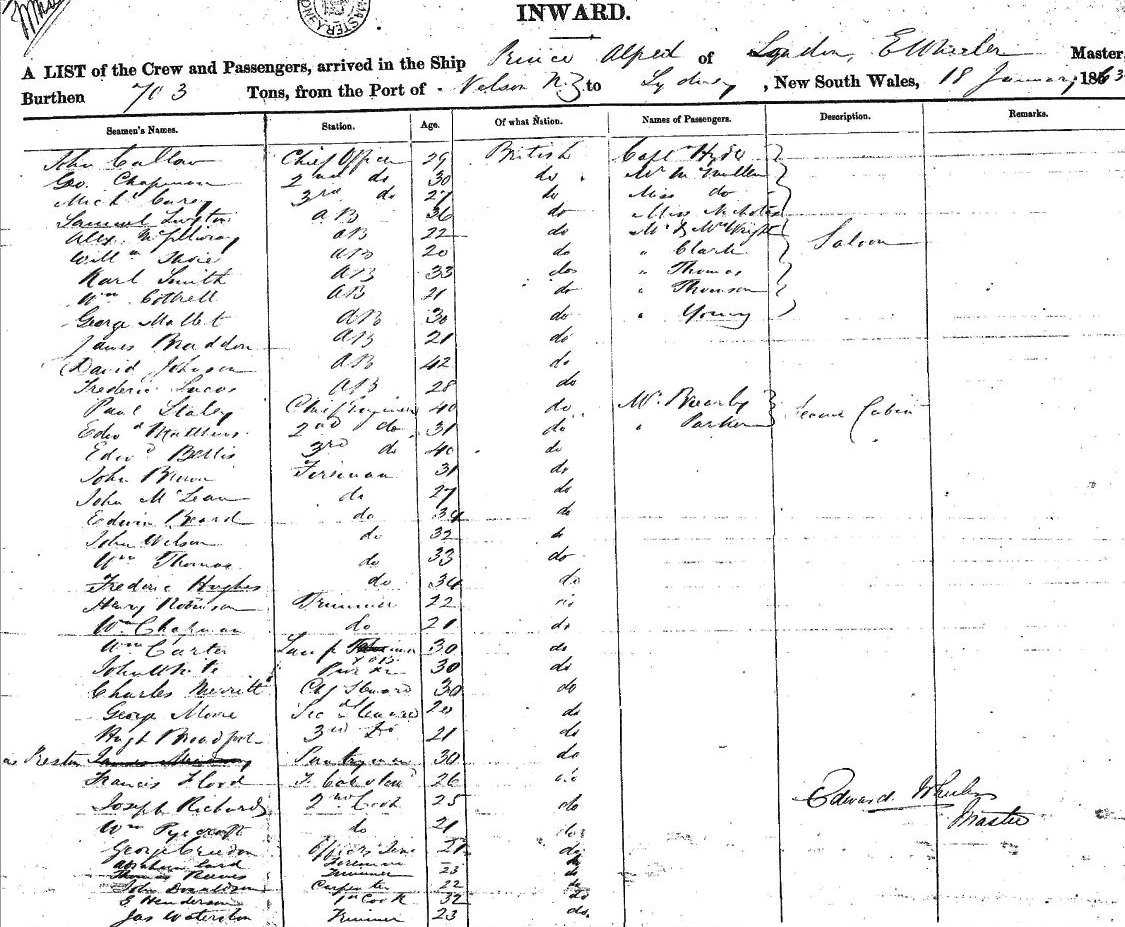 INWARD.
A LIST of the Crew and Passengers, arrived in the Ship Prince Alfred of London, E Wheeler Master,
Burthen 703 Tons, from the Port of Nelson N.Z to Sydney, New South Wales, 18 January 1863
Seamen's Names. Station. Age. Of what Nation. Names of Passengers. Description. Remarks.
John Callow Chief Officer 29 British Capt Hyde
Geo. Chapman 2nd do 30 do Mr
Michl Carey 3rd do 27 do Miss do
Samuel AB 36 do Miss Nicholson
Alex AB 22 do Mr & Mrs Wright
Willm AB 20 do " Clark Saloon
Karl Smith AB 33 do " Thomas
Wm Cottrell AB 21 do " Thomson
George Mallet AB 30 do " Young
James Braddon AB 21 do
David Johnson AB 42 do
Frederic Lucas AB 28 do
Paul Staley Chf Engineer 40 do Mr Cabin
Edwd Matthews 2nd do 31 do " Parker
Edwd Bettis 3rd do 40 do
John Brown Fireman 31 do
John McLean do 27 do
Edwin Beard do 34 do
John Wilson do 32 do
Wm Thomas do 33 do
Frederic Hughes do 34 do
Henry Robinson Trimmer 22 do
Wm Chapman do 21 do
Wm Carter Lamp 30 do
John White 30 do
Charles Merritt Chf Steward 30 do
George Moore Sec Steward 20 do
Hugh Bradfort 3rd do 21 do
Keston Pantryman 30 do
Francis Flood 26 do
Joseph Richards 2nd Cook 25 do Edward Wheeler
Wm Pyecroft do 21 do Master
George Creedon Officers 21 do
Abraham Fireman do
Thomas Reeves Trimmer 23 do
John Donaldson Carpenter 22 do
G Henderson 1st Cook 32 do
Jas Waterston Trimmer 23 do.